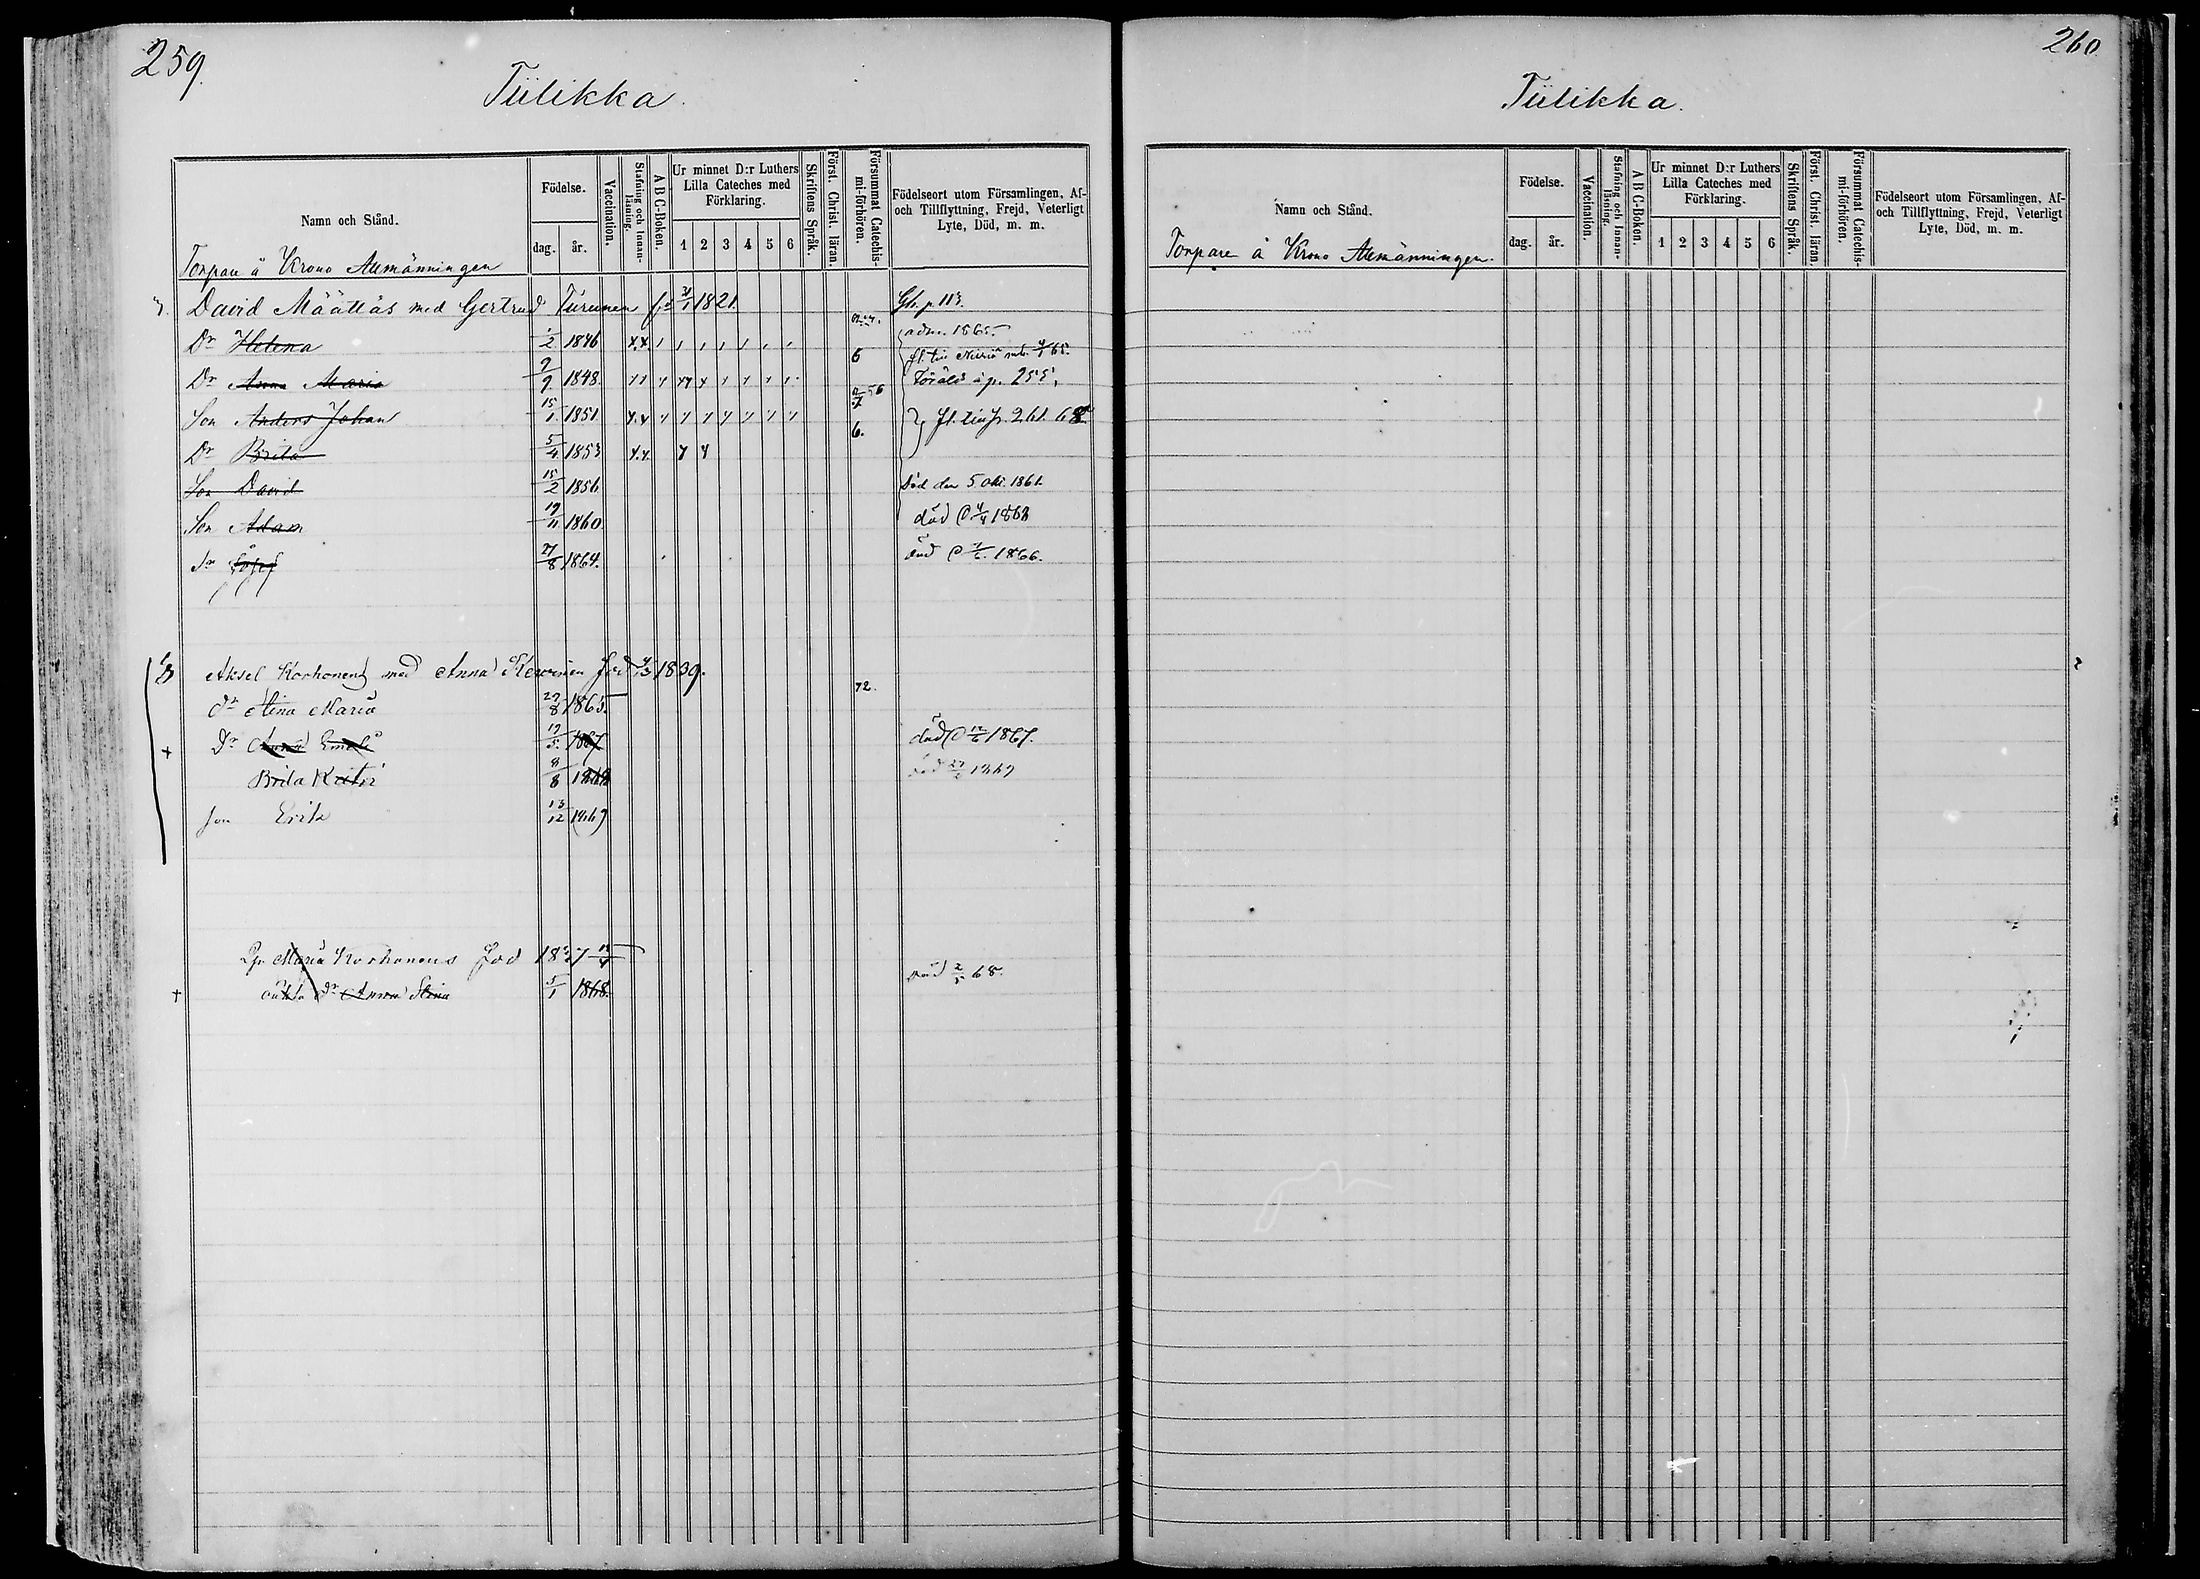 259.
Tiilikka.
Namn och Stånd.
Födelse.
dag. år.
Vaccination.
Stafning och Innan-läsning.
A B C-Boken.
Ur minnet D:r Luthers Lilla Cateches med Förklaring.
1 2 3 4 5 6
Skriftens Språk.
Först. Christ. läran.
Försummat Catechis-mi-förhören.
Födelseort utom Församlingen, Af- och Tillflyttning, Frejd, Veterligt Lyte, Död, m. m.
Torpare å Krono Allmänningen
David Määttäs med Gertrud Turunen 1821. p. 113.
Dr Helena 2 1846 x x adm. 1865.
Dr Anna Maria 9/9 1848 å p. 255.
Son Anders Johan 15/1 1851 fl. till p. 261. 68
Dr Brita 5/4 1853 x x
Son David 15/2 1856 Död den 5 1861.
Son Adam 19/11 1860. död 1868
Sn Josef 27/8 1864. död 1866.
Aksel Korhonen med Anna Kervinen född 1839. 72.
Dr Stina Maria 29/8 1865.
Dr Anna Emeli 19/5 1867 död 1867.
Brita Kristi 8/8 1868 död 1869
Son Erik 13/12 1869
Maria Korhonens född 1827
oäkta dr Anna Stina 5/1 1868. död 2/5 68.
260
Tiilikka.
Namn och Stånd.
Födelse.
dag. år.
Vaccination.
Stafning och Innan-läsning.
A B C-Boken.
Ur minnet D:r Luthers Lilla Cateches med Förklaring.
1 2 3 4 5 6
Skriftens Språk.
Först. Christ. läran.
Försummat Catechis-mi-förhören.
Födelseort utom Församlingen, Af- och Tillflyttning, Frejd, Veterligt Lyte, Död, m. m.
Torpare å Krono Allmänningen.